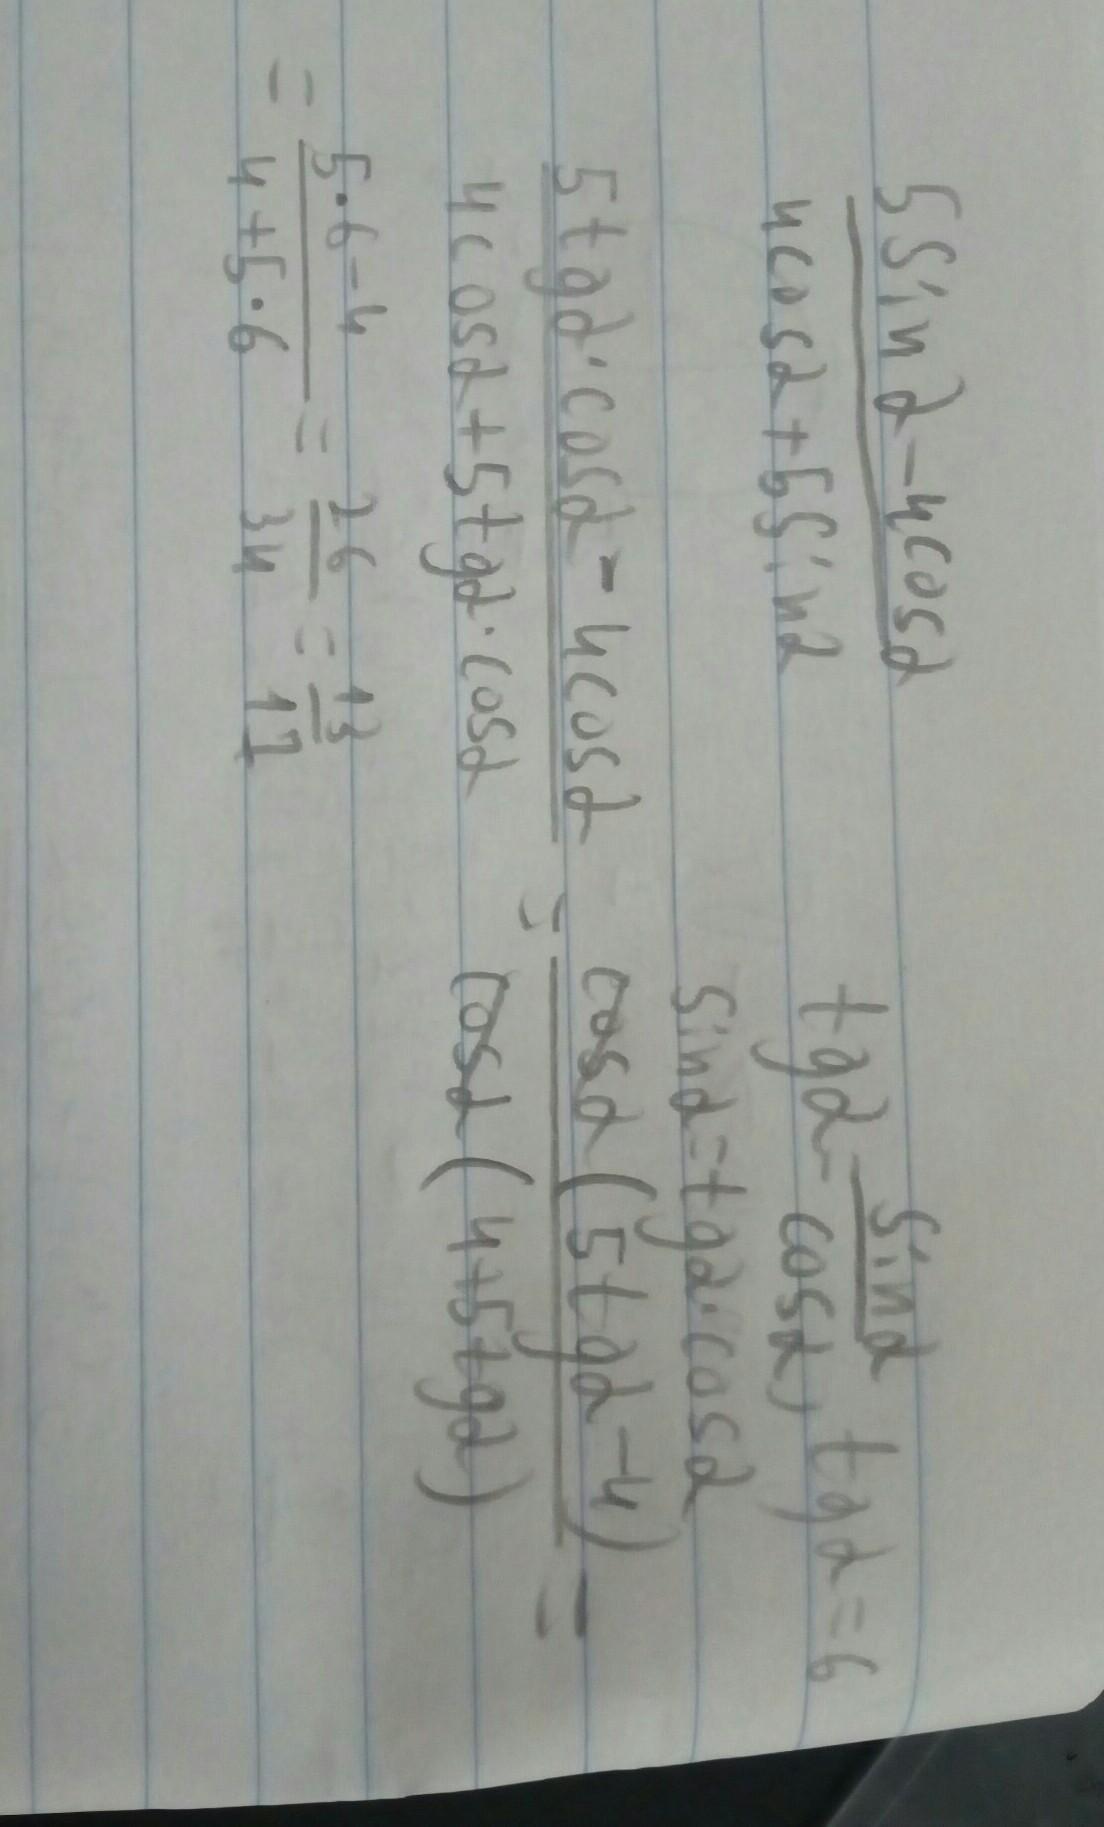 5sinα-4cosα
4cosα+5sinα
tgα=sinα/cosα, tgα=6
sinα=tgα·cosα
5tgα·cosα-4cosα
4cosα+5tgα·cosα
=
cosα(5tgα-4)
cosα(4+5tgα)
=
= 5·6-4/4+5·6 = 26/34 = 13/17